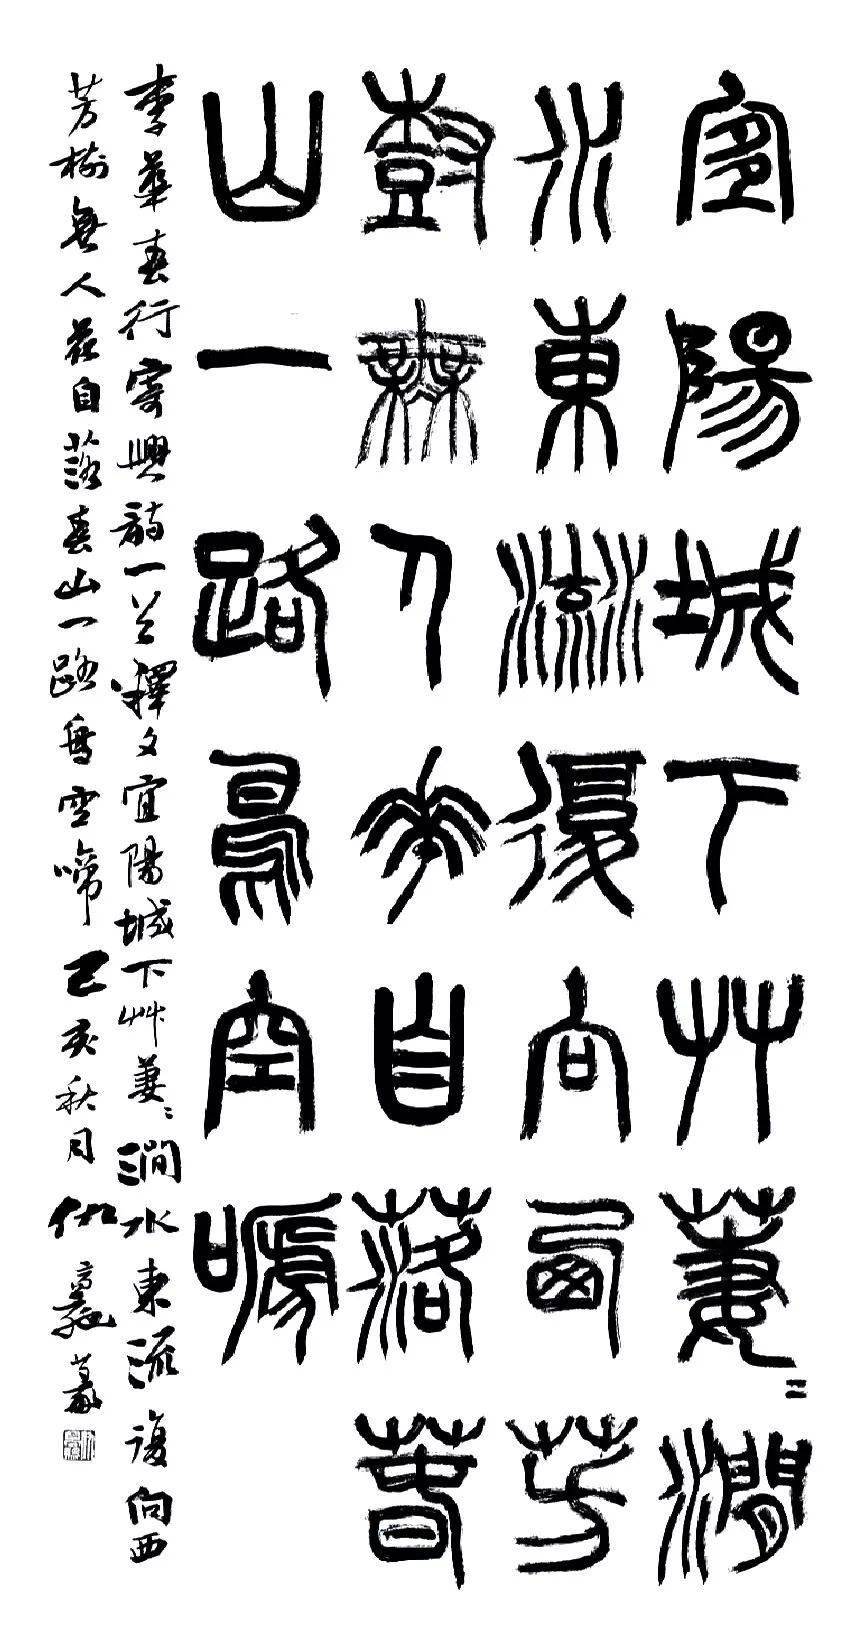 宜陽城下艸萋〻澗
水東流復向西芳
樹無人花自落春
山一路鳥空啼
李華春行寄興詩一首釋文宜陽城下艸萋〻澗水東流復向西
芳樹無人花自落春山一路鳥空啼己亥秋月仉